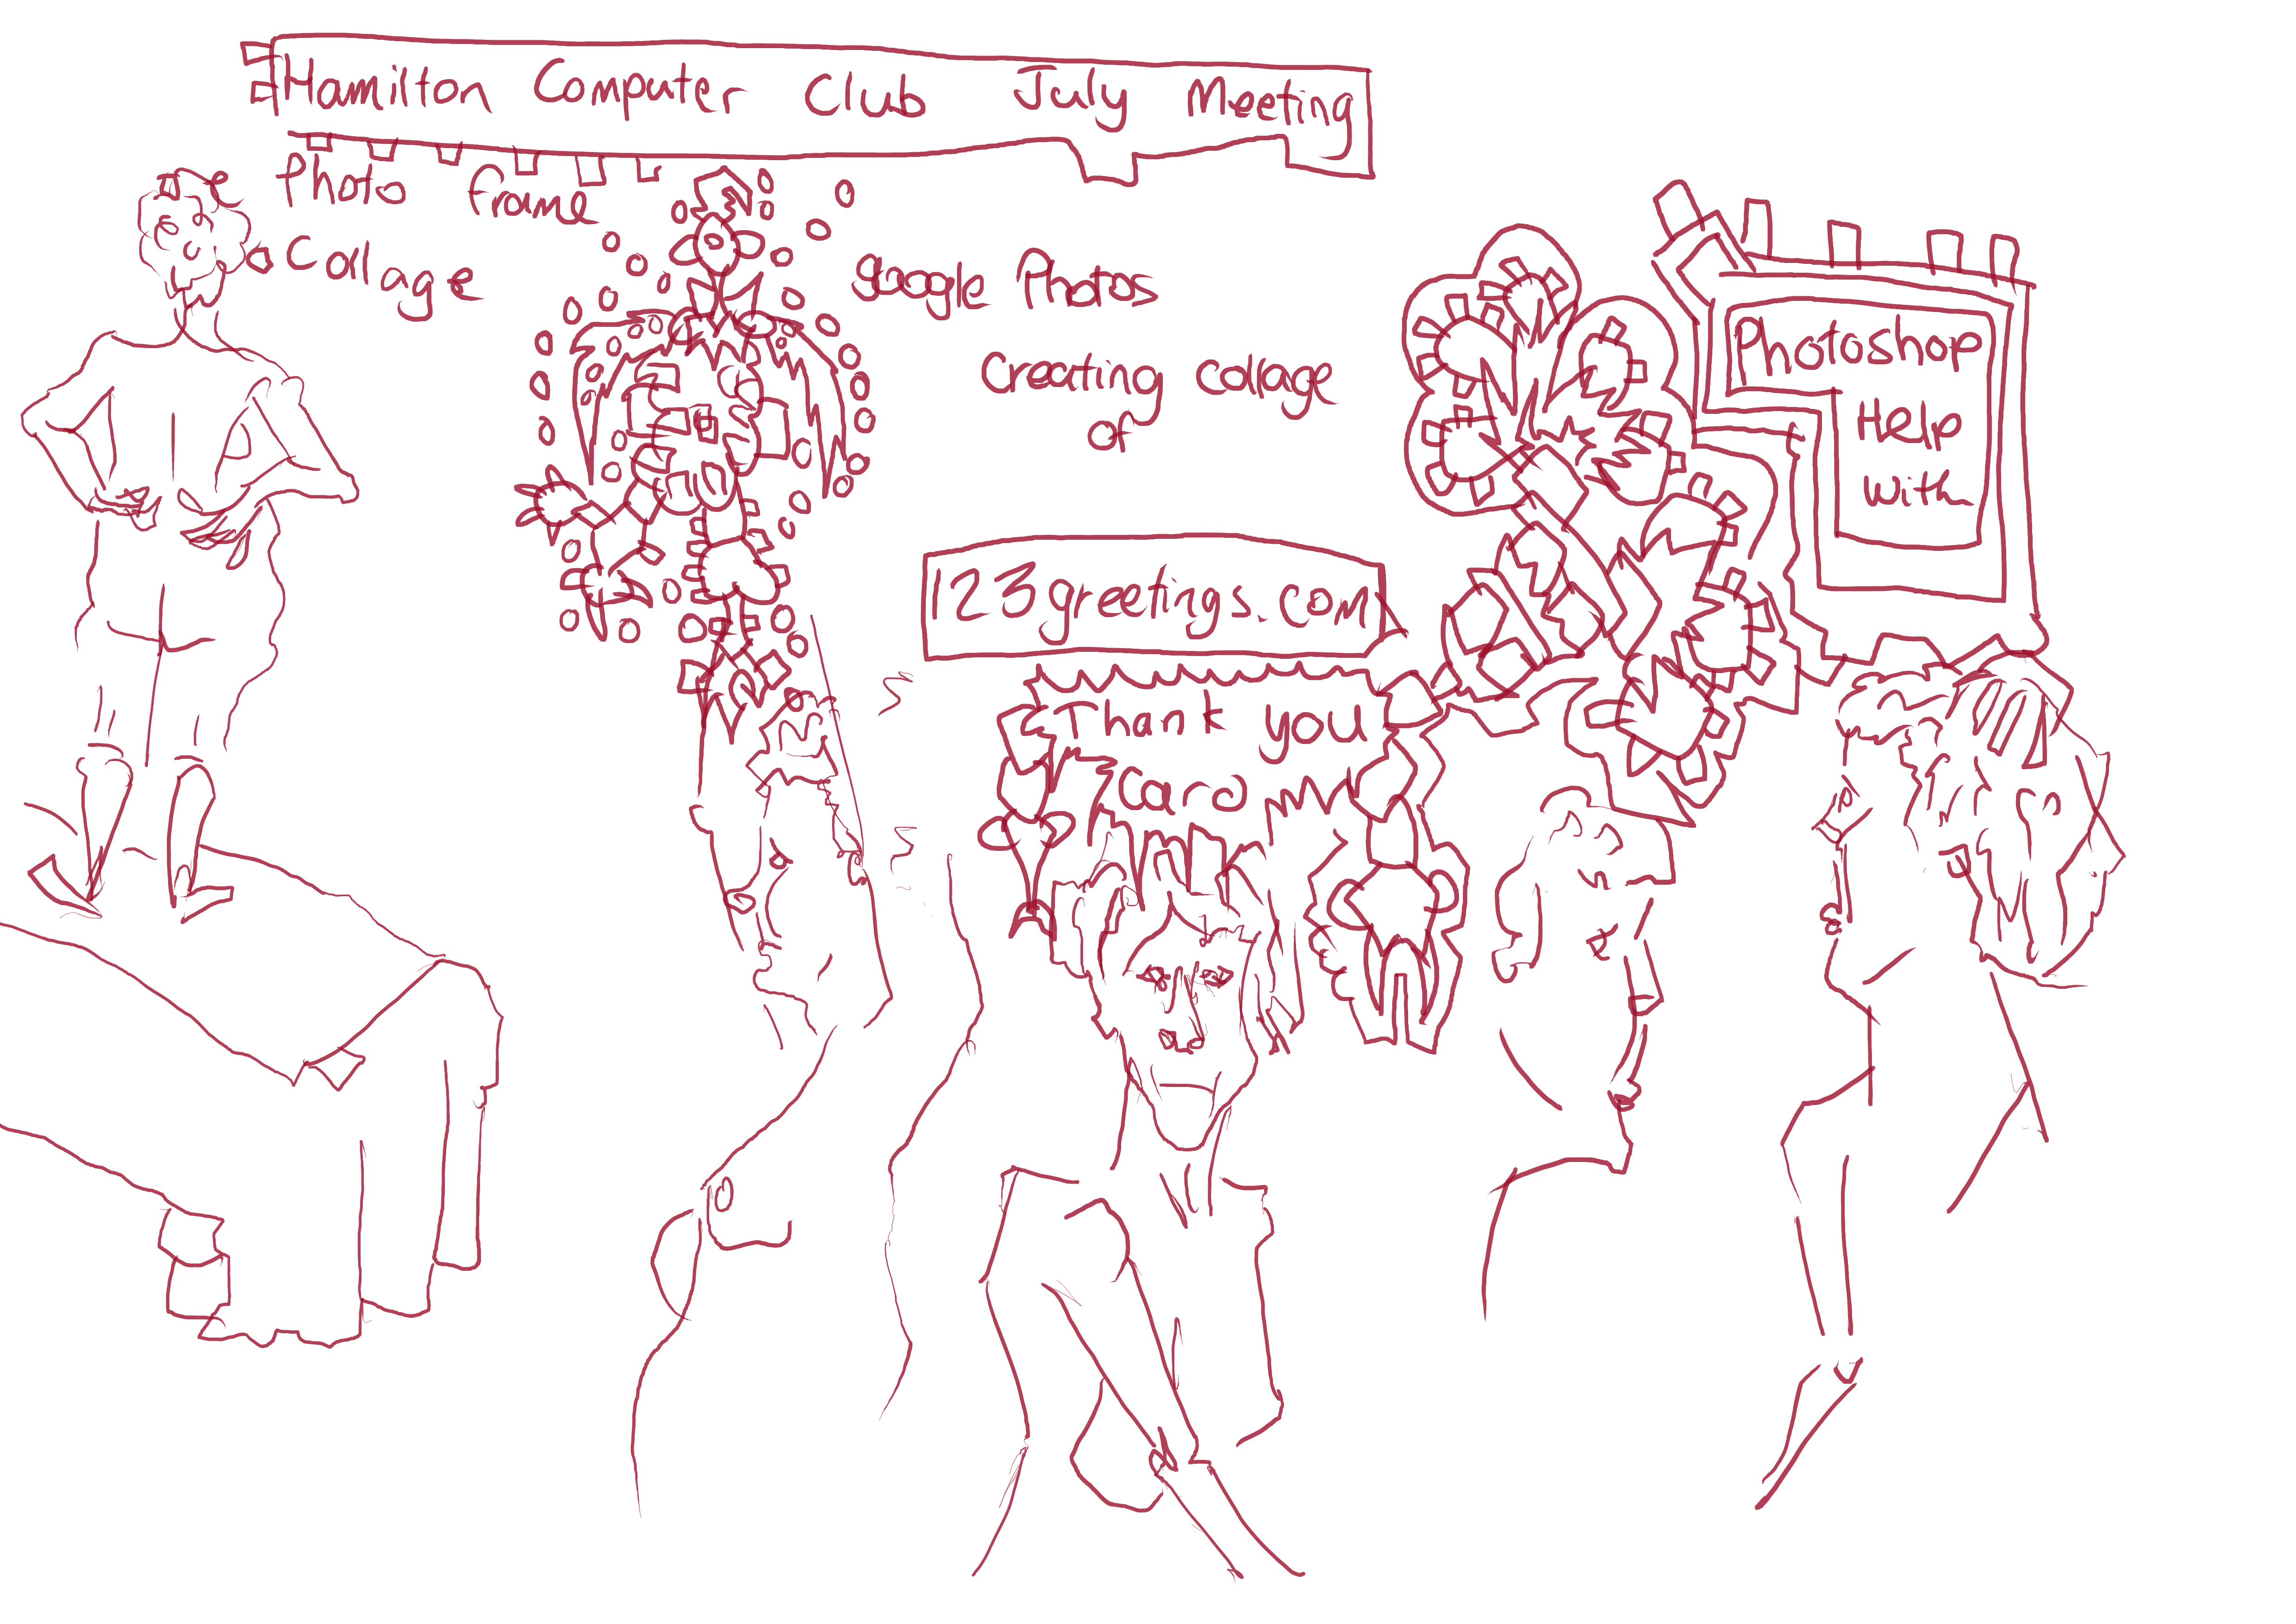 Hamilton Computer Club July Meeting
Photo frame
Collage
google Photos
Creating collage
of
Photoshop
Help
With
123greetings.com
Thank you
Card